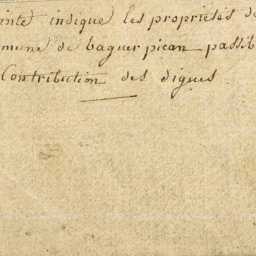 einte indique les propriétés de
mune de baguer pican passib
Contribution des digues